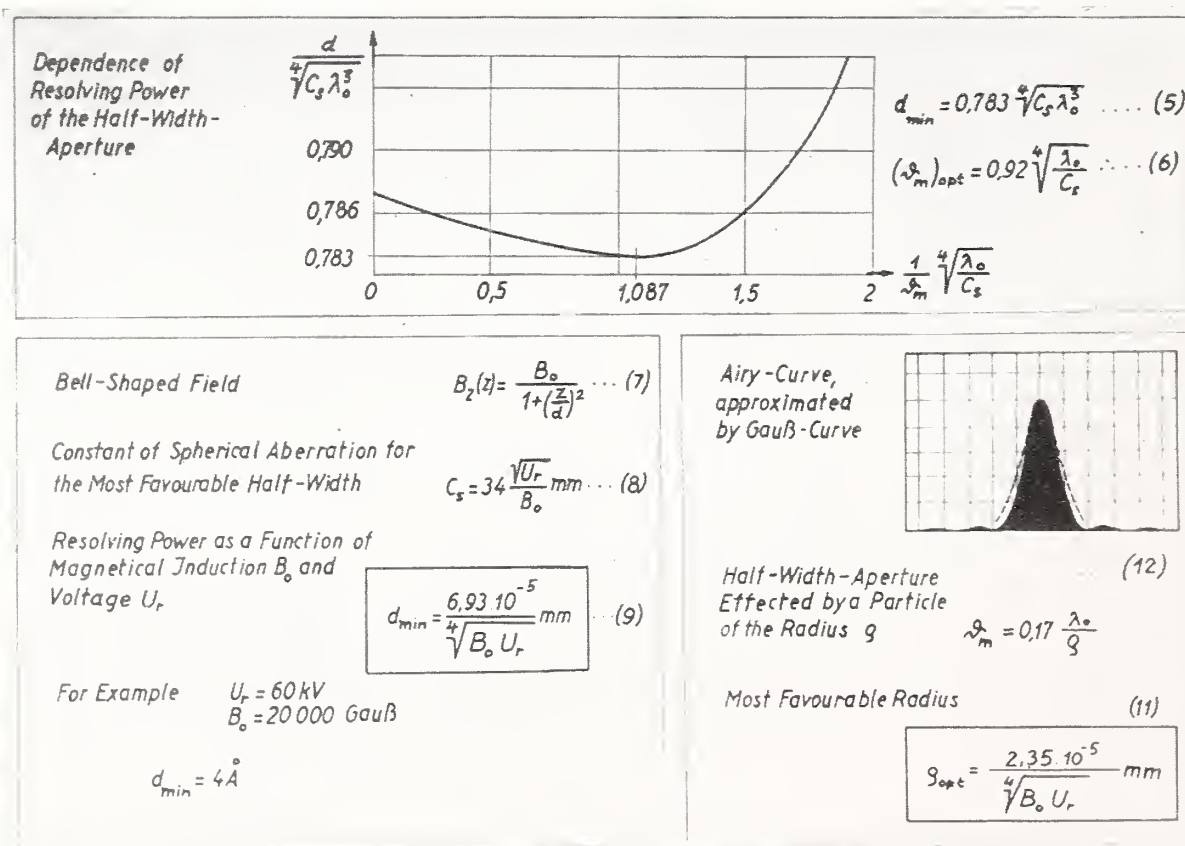 Dependence of
Resolving Power
of the Half-Width-
Aperture
d / ∜(C_s λ_o³)
0,790
0,786
0,783
0 0,5 1,087 1,5 2
1/ϑ_m ∜(λ_o/C_s)
d_min = 0,783 ∜(C_s λ_o³) .... (5)
(ϑ_m)_opt = 0,92 ∜(λ_o/C_s) .... (6)
Bell-Shaped Field B_z(z) = B_o / (1+(z/d)²) ... (7)
Constant of Spherical Aberration for
the Most Favourable Half-Width C_s = 34 √U_r / B_o mm ... (8)
Resolving Power as a Function of
Magnetical Induction B_o and
Voltage U_r
d_min = 6,93.10⁻⁵ / ∜(B_o U_r) mm ... (9)
For Example U_r = 60 kV
B_o = 20 000 Gauß
d_min = 4 Å
Airy-Curve,
approximated
by Gauß-Curve
Half-Width-Aperture (12)
Effected by a Particle
of the Radius ϱ ϑ_m = 0,17 λ_o/ϱ
Most Favourable Radius (11)
ϱ_opt = 2,35.10⁻⁵ / ∜(B_o U_r) mm